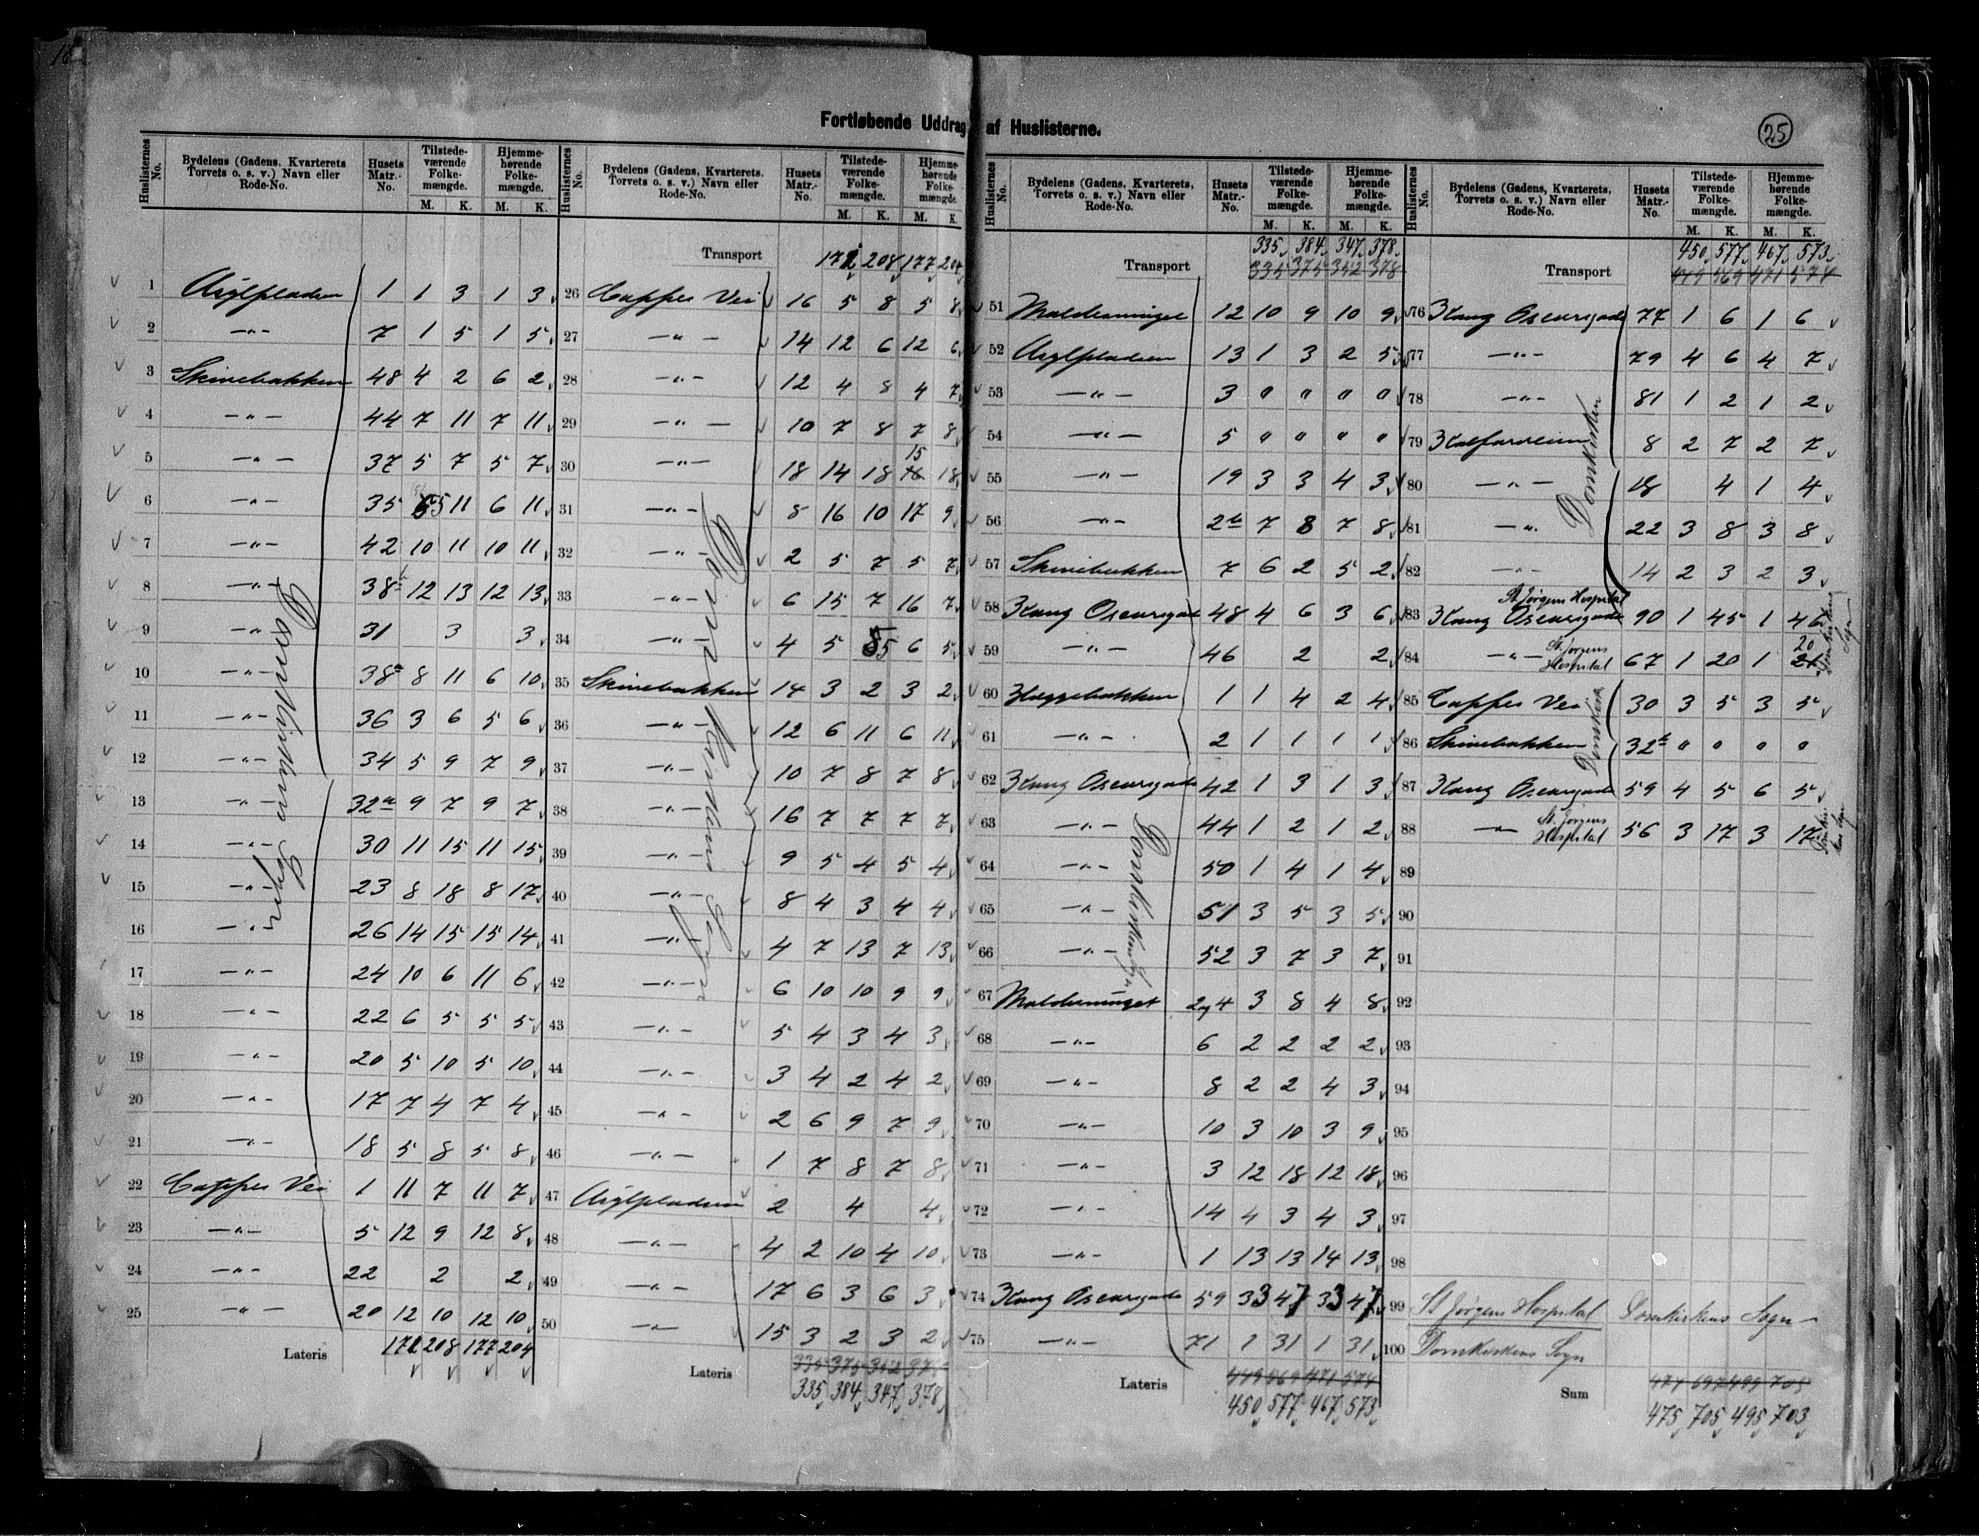 Fortløbende Uddrag af Huslisterne.
25
Huslisternes No. | Bydelens (Gadens, Kvarterets Torvets o. s. v.) Navn eller Rode-No. | Husets Matr.-No. | Tilstedeværende Folkemængde. M. K. | Hjemmehørende Folkemængde. M. K.
1 Asylpladsen 1 1 3 1 3
2 —"— 7 1 5 1 5
3 Skivebakken 48 4 2 6 2
4 —"— 44 7 11 7 11
5 —"— 37 5 7 5 7
6 —"— 35 5 11 6 11
7 —"— 42 10 11 10 11
8 —"— 38 12 13 12 13
9 —"— 31 3 3
10 —"— 38a 8 11 6 10
11 —"— 36 3 6 5 6
12 —"— 34 5 9 7 9
13 —"— 32a 9 7 9 7
14 —"— 30 11 15 11 15
15 —"— 23 8 18 8 17
16 —"— 26 14 15 15 14
17 —"— 24 10 6 11 6
18 —"— 22 6 5 5 5
19 —"— 20 5 10 5 10
20 —"— 17 7 4 7 4
21 —"— 18 5 8 5 8
22 Cappes Vei 1 11 7 11 7
23 —"— 5 12 9 12 8
24 —"— 22 2 2
25 —"— 20 12 10 12 10
Lateris 172 208 177 204
Transport 172 208 177 204
26 Cappes Vei 16 5 8 5 8
27 —"— 14 12 6 12 6
28 —"— 12 4 8 4 7
29 —"— 10 7 8 7 8
30 —"— 18 14 18 15 18
31 —"— 8 16 10 17 9
32 —"— 2 5 7 5 7
33 —"— 6 15 7 16 7
34 —"— 4 5 5 6 5
35 Skivebakken 14 3 2 3 2
36 —"— 12 6 11 6 11
37 —"— 10 7 8 7 8
38 —"— 16 7 7 7 7
39 —"— 9 5 4 5 4
40 —"— 8 4 3 4 4
41 —"— 4 7 13 7 13
42 —"— 6 10 10 9 9
43 —"— 5 4 3 4 3
44 —"— 3 4 2 4 2
45 —"— 2 6 9 7 9
46 —"— 1 7 8 7 8
47 Asylpladsen 2 4 4
48 —"— 4 2 10 4 10
49 —"— 17 6 3 6 3
50 —"— 15 3 2 3 2
Lateris 335 375 342 378
335 384 347 378
335 384 347 378
Transport 335 375 342 378
51 Maldeaminget 12 10 9 10 9
52 Asylpladsen 13 1 3 2 5
53 —"— 3 " " " "
54 —"— 5 " " " "
55 —"— 19 3 3 4 3
56 —"— 2b 7 8 7 8
57 Skivebakken 7 6 2 5 2
58 Kong Oscarsgade 48 4 6 3 6
59 —"— 46 2 2
60 Heggebakken 1 1 4 2 4
61 —"— 2 1 1 1 1
62 Kong Oscarsgade 42 1 3 1 3
63 —"— 44 1 2 1 2
64 —"— 50 1 4 1 4
65 —"— 51 3 5 3 5
66 —"— 52 3 7 3 7
67 2 4 3 8 4 8
68 —"— 6 2 2 2 2
69 —"— 8 2 2 4 3
70 —"— 10 3 10 3 9
71 —"— 3 12 18 12 18
72 —"— 14 4 3 4 3
73 —"— 1 13 13 14 13
74 Kong Oscarsgade 59 33 47 33 47
75 —"— 71 1 31 1 31
Lateris 449 569 471 574
450 577 467 573
450 577 467 573
Transport 449 569 471 574
76 Kong Oscarsgade 77 1 6 1 6
77 —"— 79 4 6 4 7
78 —"— 81 1 2 1 2
79 Kalfarveien 8 2 7 2 7
80 —"— 18 4 1 4
81 —"— 22 3 8 3 8
82 —"— 14 2 3 2 3
83 St. Jørgens Hospital Kong Oscarsgade 90 1 45 1 46
84 —"— St. Jørgens Hospital 67 1 20 1 20
85 Cappes Vei 30 3 5 3 5
86 Skivebakken 32b " " " "
87 Kong Oscarsgade 59 4 5 6 5
88 —"— St. Jørgens Hospital 56 3 17 3 17
89
90
91
92
93
94
95
96
97
98
99 St Jørgens Hospital Domkirkens Sogn
100 Domkirkens Sogn
Sum 471 697 499 705
475 705 495 703
Domkirken